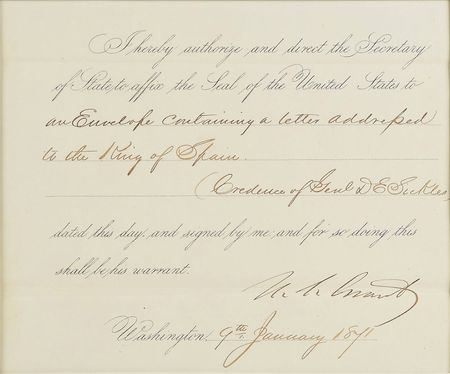 I hereby authorize and direct the Secretary
of State to affix the Seal of the United States to
an Envelope containing a letter addressed
to the King of Spain.
(Credence of Genl D E Sickles
dated this day, and signed by me, and for so doing this
shall be his warrant.
U. S. Grant
Washington, 9th January 1871